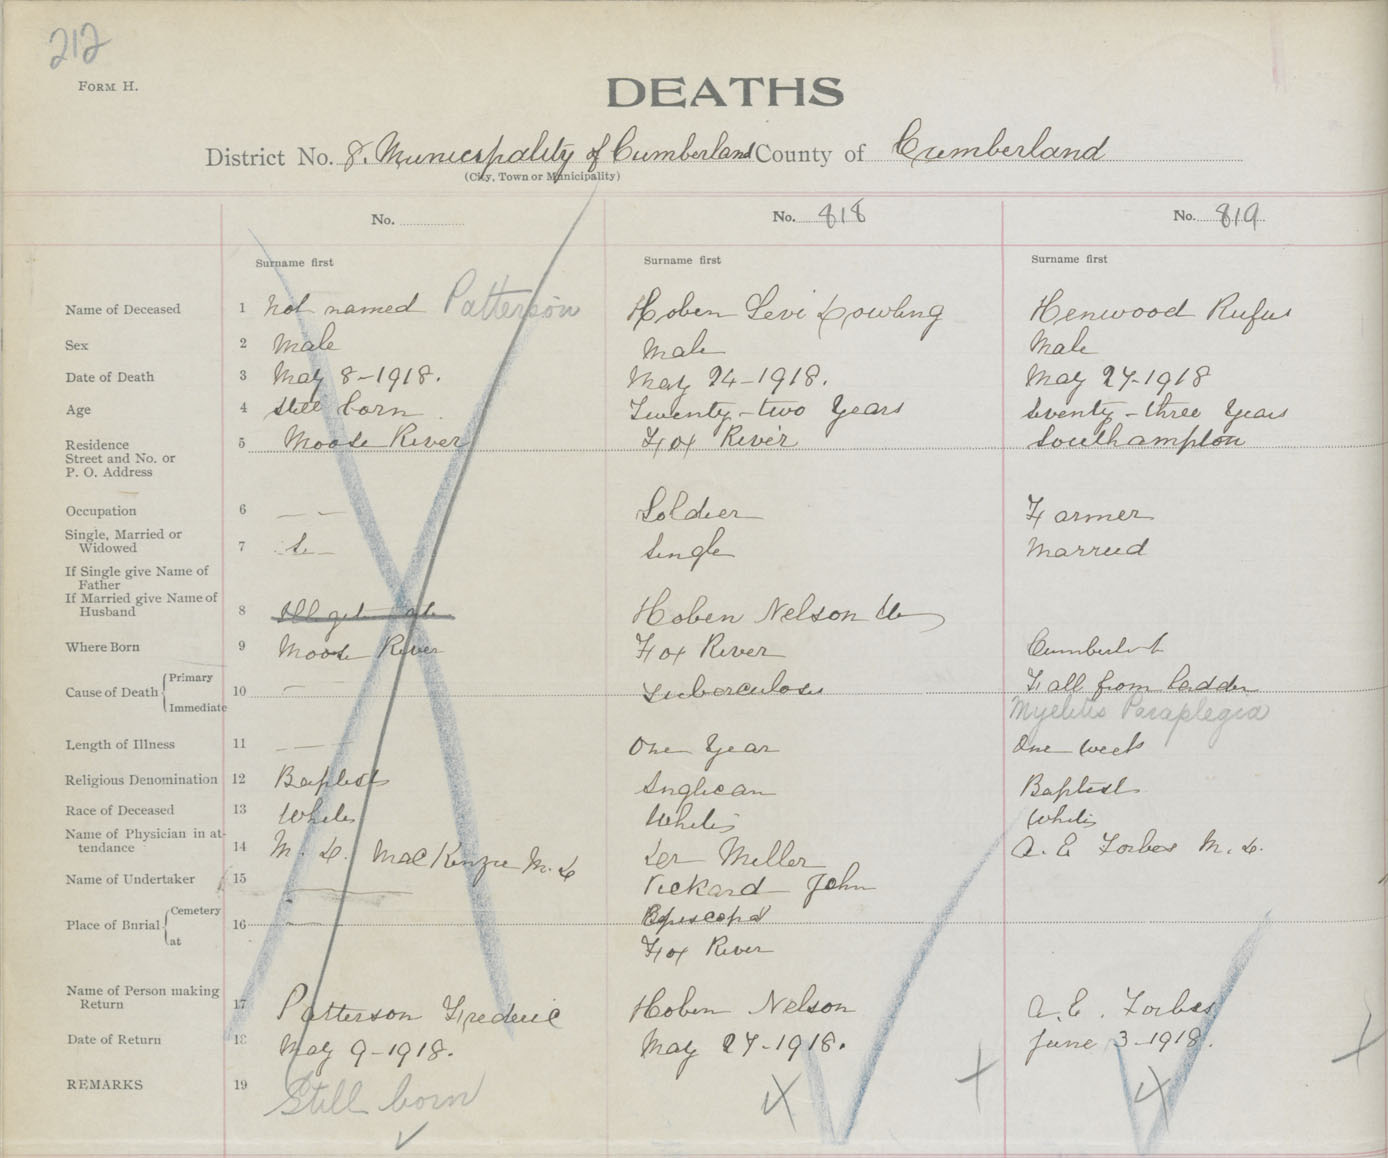 212
FORM H.
DEATHS
District No. 8. Municipality of Cumberland County of Cumberland
(City, Town or Municipality)
No. No. 818 No. 819
Surname first Surname first Surname first
Name of Deceased 1 Not named Patterson Hoben Levi Dowling Henwood Rufus
Sex 2 Male Male Male
Date of Death 3 May 8-1918. May 24-1918. May 27-1918
Age 4 Still born Twenty-two Years Seventy-three Years
Residence 5 Moose River Fox River Southampton
Street and No. or
P. O. Address
Occupation 6 — — Soldier Farmer
Single, Married or
Widowed 7 S— Single Married
If Single give Name of
Father
If Married give Name of
Husband 8 Hoben Nelson
Where Born 9 Moose River Fox River
Cause of Death Primary 10 — Tuberculosis Fall from ladder
Immediate Myelitis Paraplegia
Length of Illness 11 — — One Year One week
Religious Denomination 12 Baptist Anglican Baptist
Race of Deceased 13 White White White
Name of Physician in at-
tendance 14 M. D. MacKenzie M. D Miller A. E Forbes M. D.
Name of Undertaker 15 Rickard John
Place of Burial Cemetery 16 — Episcopal
at Fox River
Name of Person making
Return 17 Patterson Frederic Hoben Nelson A. E. Forbes
Date of Return 18 May 9-1918. May 27-1918. June 3-1918.
REMARKS 19 Still born